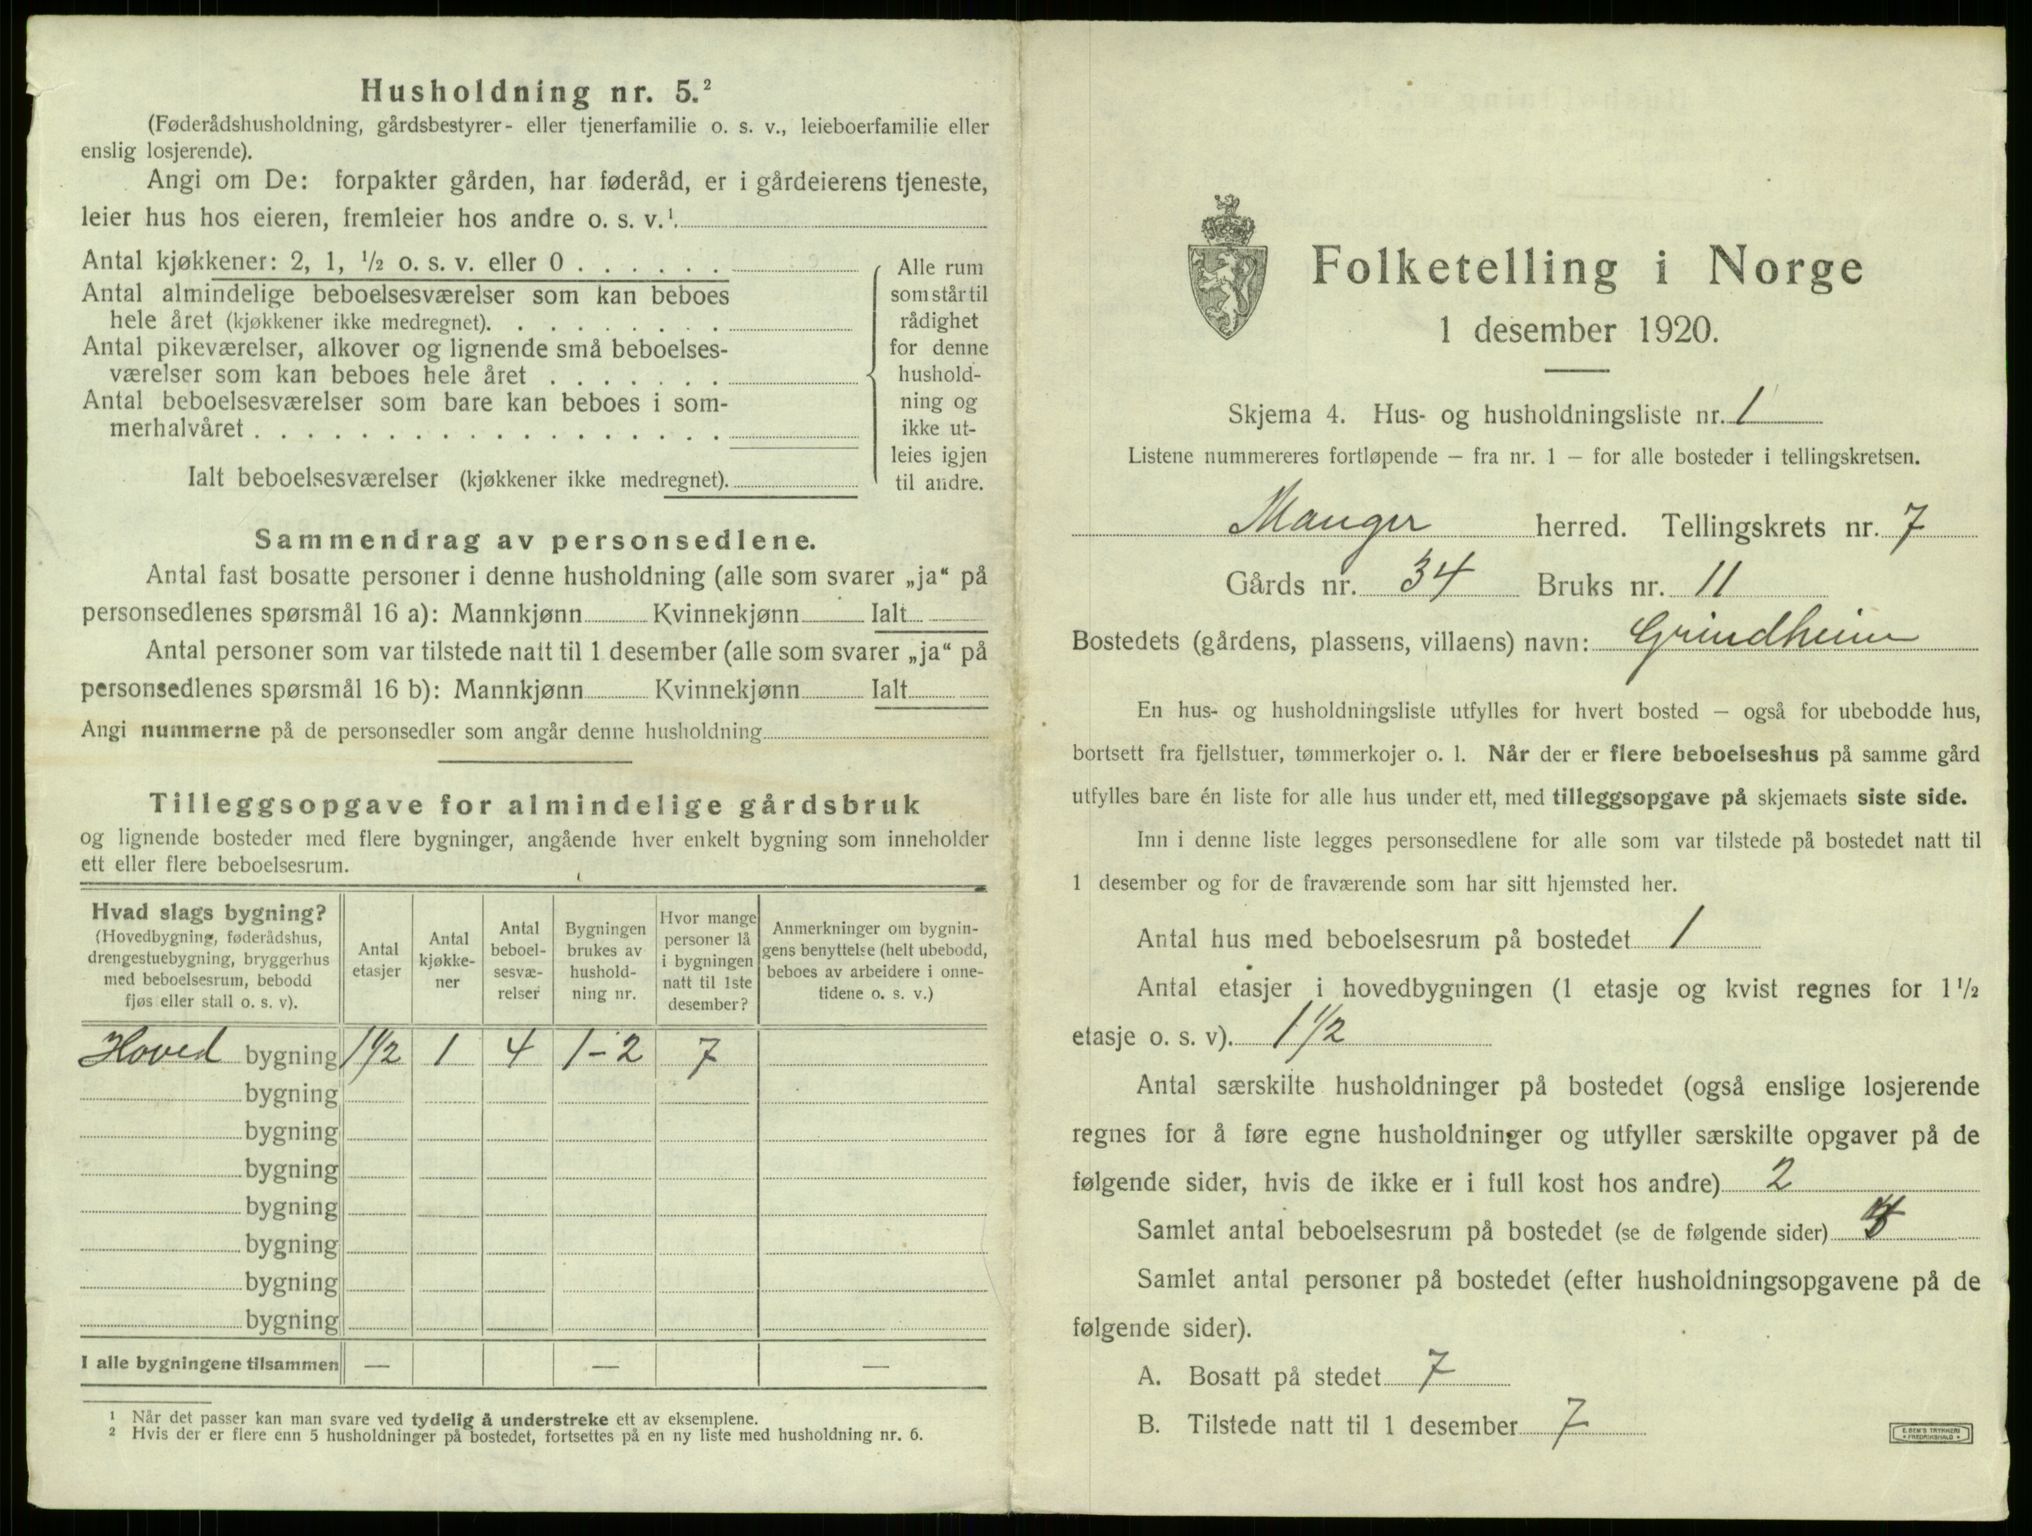 Husholdning nr. 5.²
(Føderådshusholdning, gårdsbestyrer- eller tjenerfamilie o. s. v., leieboerfamilie eller
enslig losjerende).
Angi om De: forpakter gården, har føderåd, er i gårdeierens tjeneste,
leier hus hos eieren, fremleier hos andre o. s. v.¹
Antal kjøkkener: 2, 1, ½ o. s. v. eller 0 . . . . . .
Antal almindelige beboelsesværelser som kan beboes
hele året (kjøkkener ikke medregnet). . . . . . . . .
Antal pikeværelser, alkover og lignende små beboelses-
værelser som kan beboes hele året . . . . . . .
Antal beboelsesværelser som bare kan beboes i som-
merhalvåret . . . . . . . . . . . . . . . . . .
Ialt beboelsesværelser (kjøkkener ikke medregnet).
Alle rum
som står til
rådighet
for denne
hushold-
ning og
ikke ut-
leies igjen
til andre.
Sammendrag av personsedlene.
Antal fast bosatte personer i denne husholdning (alle som svarer „ja“ på
personsedlenes spørsmål 16 a): Mannkjønn Kvinnekjønn Ialt
Antal personer som var tilstede natt til 1 desember (alle som svarer „ja“ på
personsedlenes spørsmål 16 b): Mannkjønn Kvinnekjønn Ialt
Angi nummerne på de personsedler som angår denne husholdning
Tilleggsopgave for almindelige gårdsbruk
og lignende bosteder med flere bygninger, angående hver enkelt bygning som inneholder
ett eller flere beboelsesrum.
Hvad slags bygning?
(Hovedbygning, føderådshus,
drengestuebygning, bryggerhus
med beboelsesrum, bebodd
fjøs eller stall o. s. v).
Antal
etasjer
Antal
kjøkke-
ner
Antal
beboel-
sesvæ-
relser
Bygningen
brukes av
hushold-
ning nr.
Hvor mange
personer lå
i bygningen
natt til 1ste
desember?
Anmerkninger om bygnin-
gens benyttelse (helt ubebodd,
beboes av arbeidere i onne-
tidene o. s. v.)
Hoved bygning 1½ 1 4 1-2 7
bygning
bygning
bygning
bygning
bygning
bygning
bygning
I alle bygningene tilsammen — — —
¹ Når det passer kan man svare ved tydelig å understreke ett av eksemplene.
² Hvis der er flere enn 5 husholdninger på bostedet, fortsettes på en ny liste med husholdning nr. 6.
Folketelling i Norge
1 desember 1920.
Skjema 4. Hus- og husholdningsliste nr. 1
Listene nummereres fortløpende — fra nr. 1 — for alle bosteder i tellingskretsen.
Manger herred. Tellingskrets nr. 7
Gårds nr. 34 Bruks nr. 11
Bostedets (gårdens, plassens, villaens) navn: Grindheim
En hus- og husholdningsliste utfylles for hvert bosted — også for ubebodde hus,
bortsett fra fjellstuer, tømmerkojer o. l. Når der er flere beboelseshus på samme gård
utfylles bare én liste for alle hus under ett, med tilleggsopgave på skjemaets siste side.
Inn i denne liste legges personsedlene for alle som var tilstede på bostedet natt til
1 desember og for de fraværende som har sitt hjemsted her.
Antal hus med beboelsesrum på bostedet 1
Antal etasjer i hovedbygningen (1 etasje og kvist regnes for 1½
etasje o. s. v). 1½
Antal særskilte husholdninger på bostedet (også enslige losjerende
regnes for å føre egne husholdninger og utfyller særskilte opgaver på de
følgende sider, hvis de ikke er i full kost hos andre) 2
Samlet antal beboelsesrum på bostedet (se de følgende sider)
Samlet antal personer på bostedet (efter husholdningsopgavene på de
følgende sider).
A. Bosatt på stedet 7
B. Tilstede natt til 1 desember 7
E. SEM'S TRYKKERI
FREDRIKSHALD